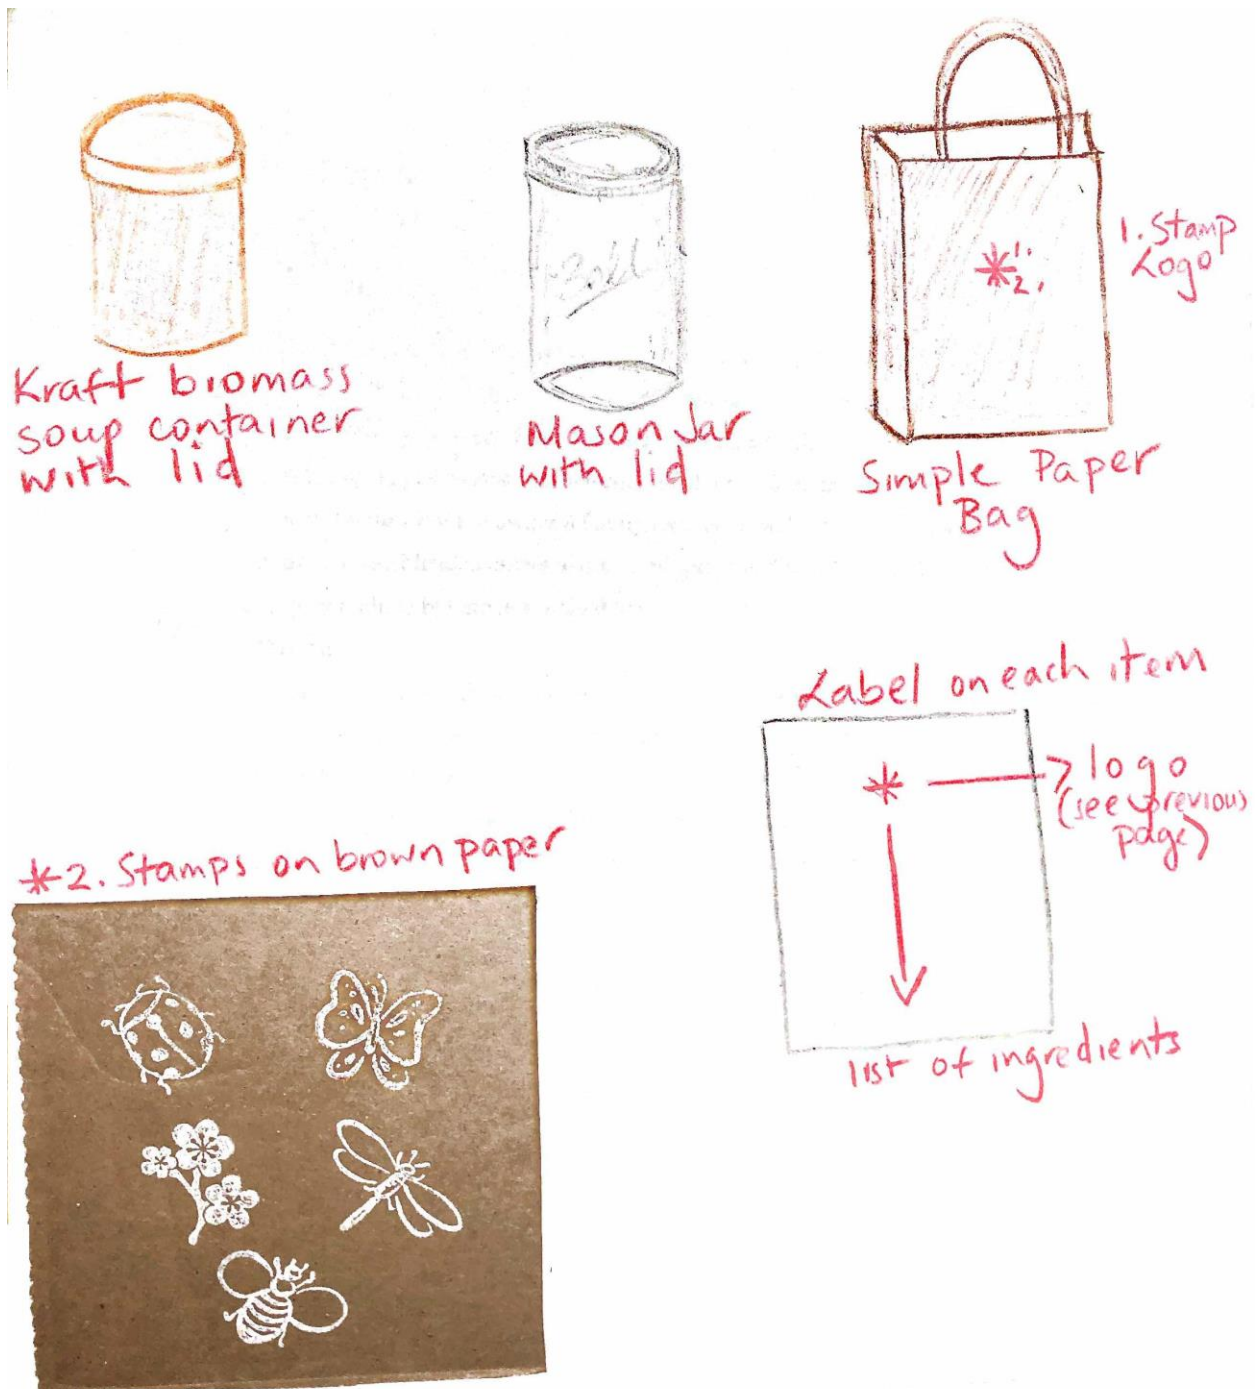 Kraft biomass
soup container
with lid
Mason Jar
with lid
*1.
2.
1. Stamp
Logo
Simple Paper
Bag
Label on each item
*
logo
(see previous
page)
list of ingredients
*2. Stamps on brown paper